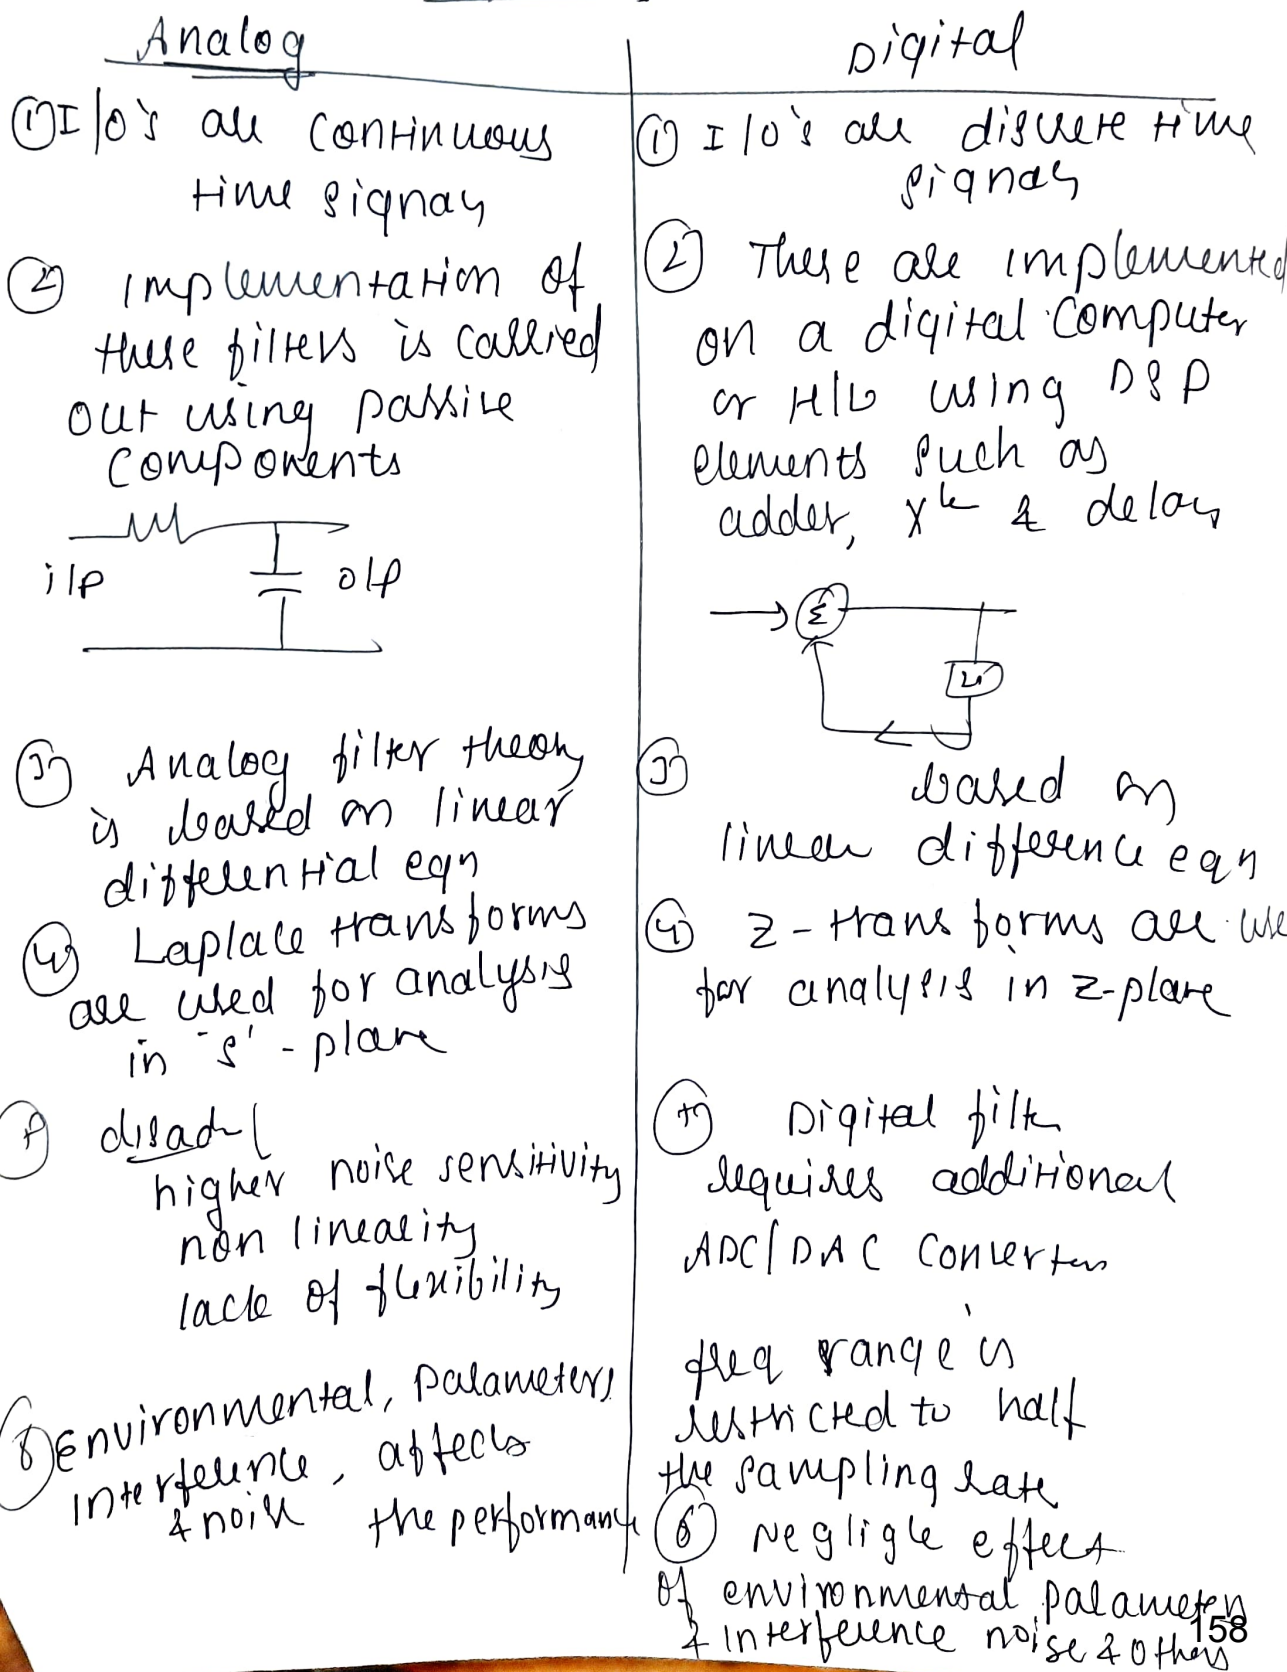 Analog
① I/O's are continuous
time signals
② implementation of
these filters is carried
out using passive
components
i/p
o/p
③ Analog filter theory
is based on linear
differential eqn
④ Laplace transforms
are used for analysis
in 's' - plane
disadv
higher noise sensitivity
non linearity
lack of flexibility
environmental, parameters
interference, affects
& noise the performance
Digital
① I/O's are discrete time
signals
② These are implemented
on a digital computer
or H/W using DSP
elements such as
adder, & delay
Σ
③ based on
linear difference eqn
④ z-transforms are use
for analysis in z-plane
Digital filter
requires additional
ADC/DAC converters
freq range is
restricted to half
the sampling rate
⑥ Negligle effect
of environmental parameters
& interference noise & others
158